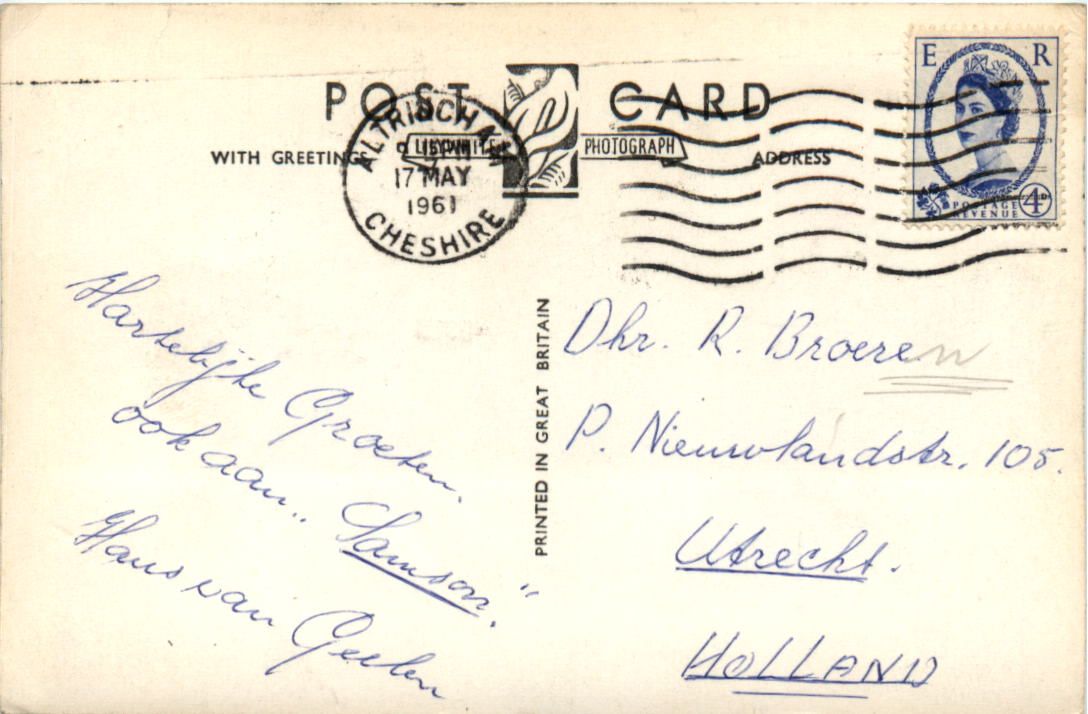 POST CARD
WITH GREETINGS
LILYWHITE
PHOTOGRAPH
ADDRESS
ALTRINCHAM
17 MAY
1961
CHESHIRE
E R
POSTAGE
REVENUE
4D
PRINTED IN GREAT BRITAIN
Hartelijke Groeten.
ook aan „Samson."
Hans van Geelen
Dhr. R. Broeren
P. Nieuwlandstr. 105.
Utrecht.
HOLLAND